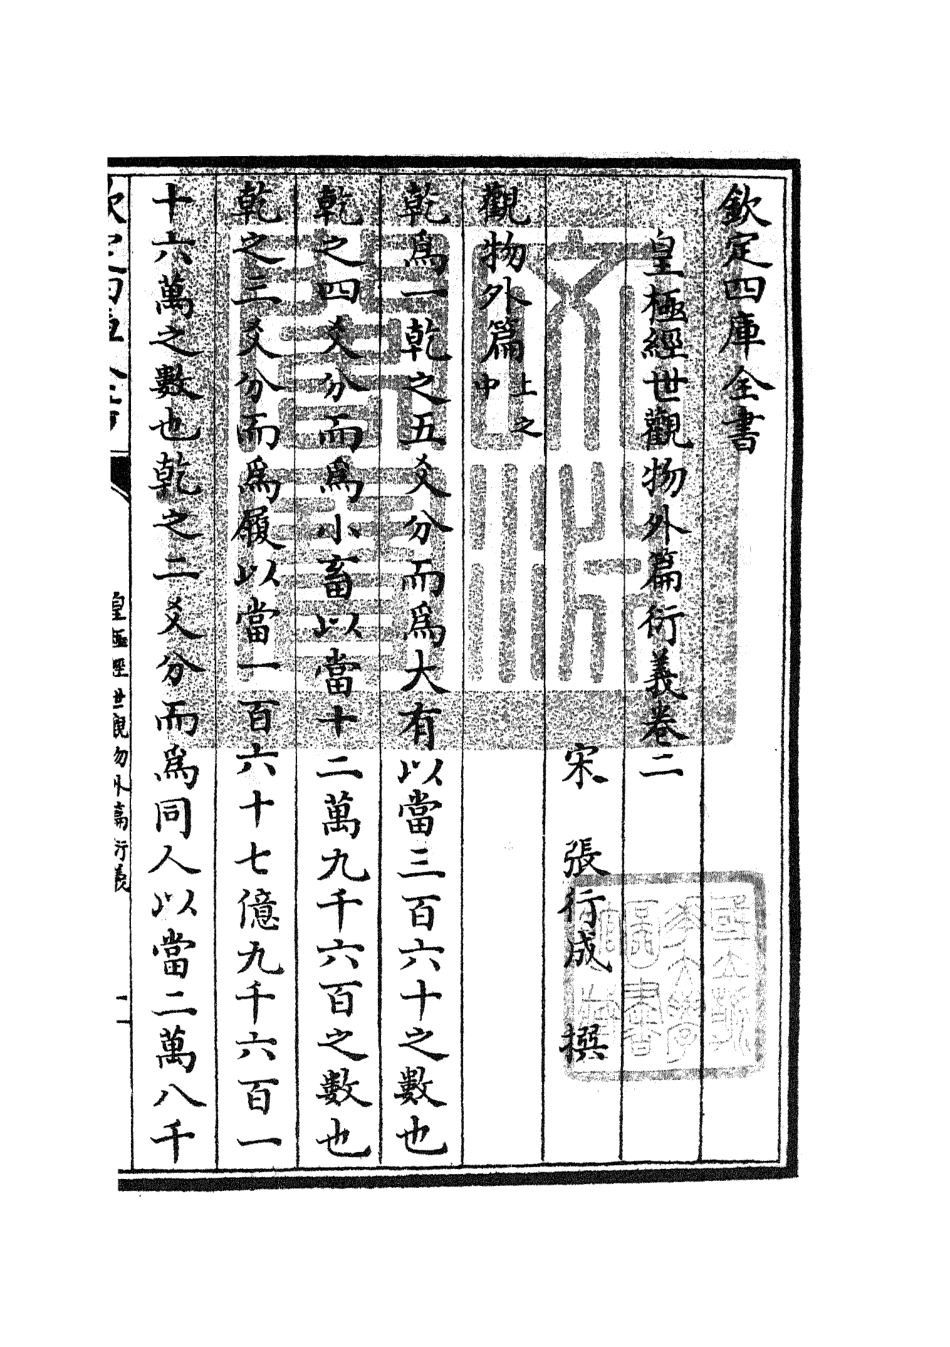 欽定四庫全書
皇極經世觀物外篇衍義卷二
宋 張行成 撰
觀物外篇上之中
乾為一乾之五爻分而為大有以當三百六十之數也
乾之四爻分而為小畜以當十二萬九千六百之數也
乾之三爻分而為履以當一百六十七億九千六百一
十六萬之數也乾之二爻分而為同人以當二萬八千
皇極經世觀物外篇衍義
一